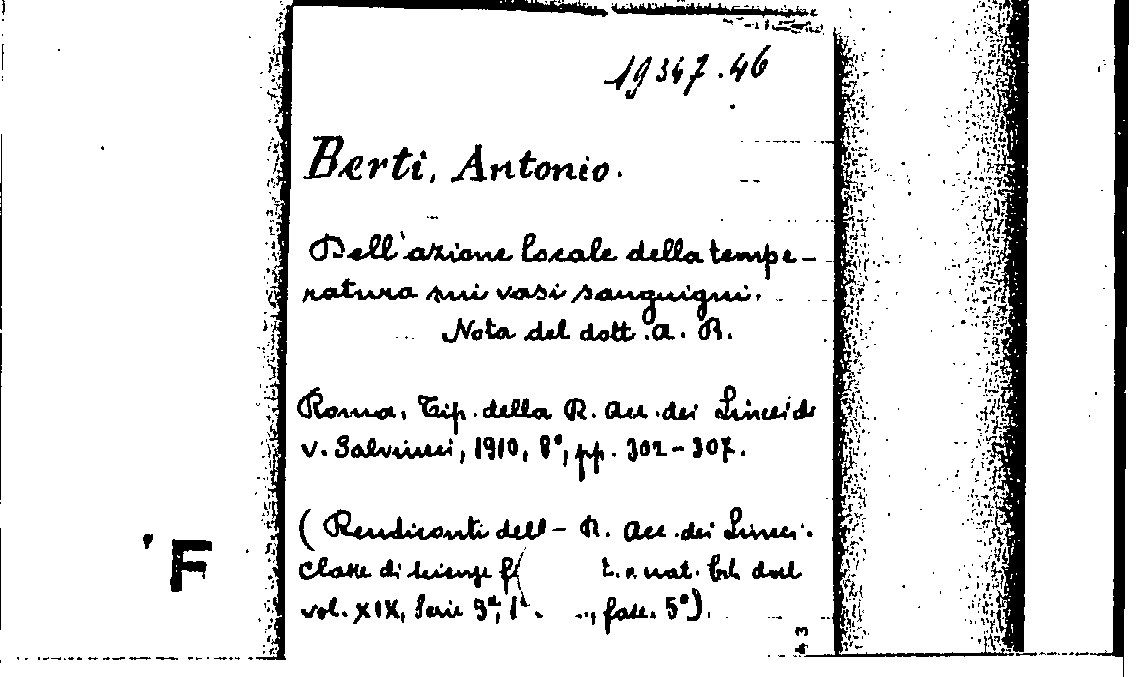 19347.46
Berti, Antonio.
Dell'azione locale della tempe-
ratura sui vasi sanguigni.
Nota del dott. A. B.
Roma, Tip. della R. Acc. dei Lincei
v. Salviucci, 1910, 8°, pp. 302-307.
(Rendiconti dell- R. Acc. dei Lincei.
Classe di scienze nat.
vol. XIX, Serie 5ª, fasc. 5°).
F